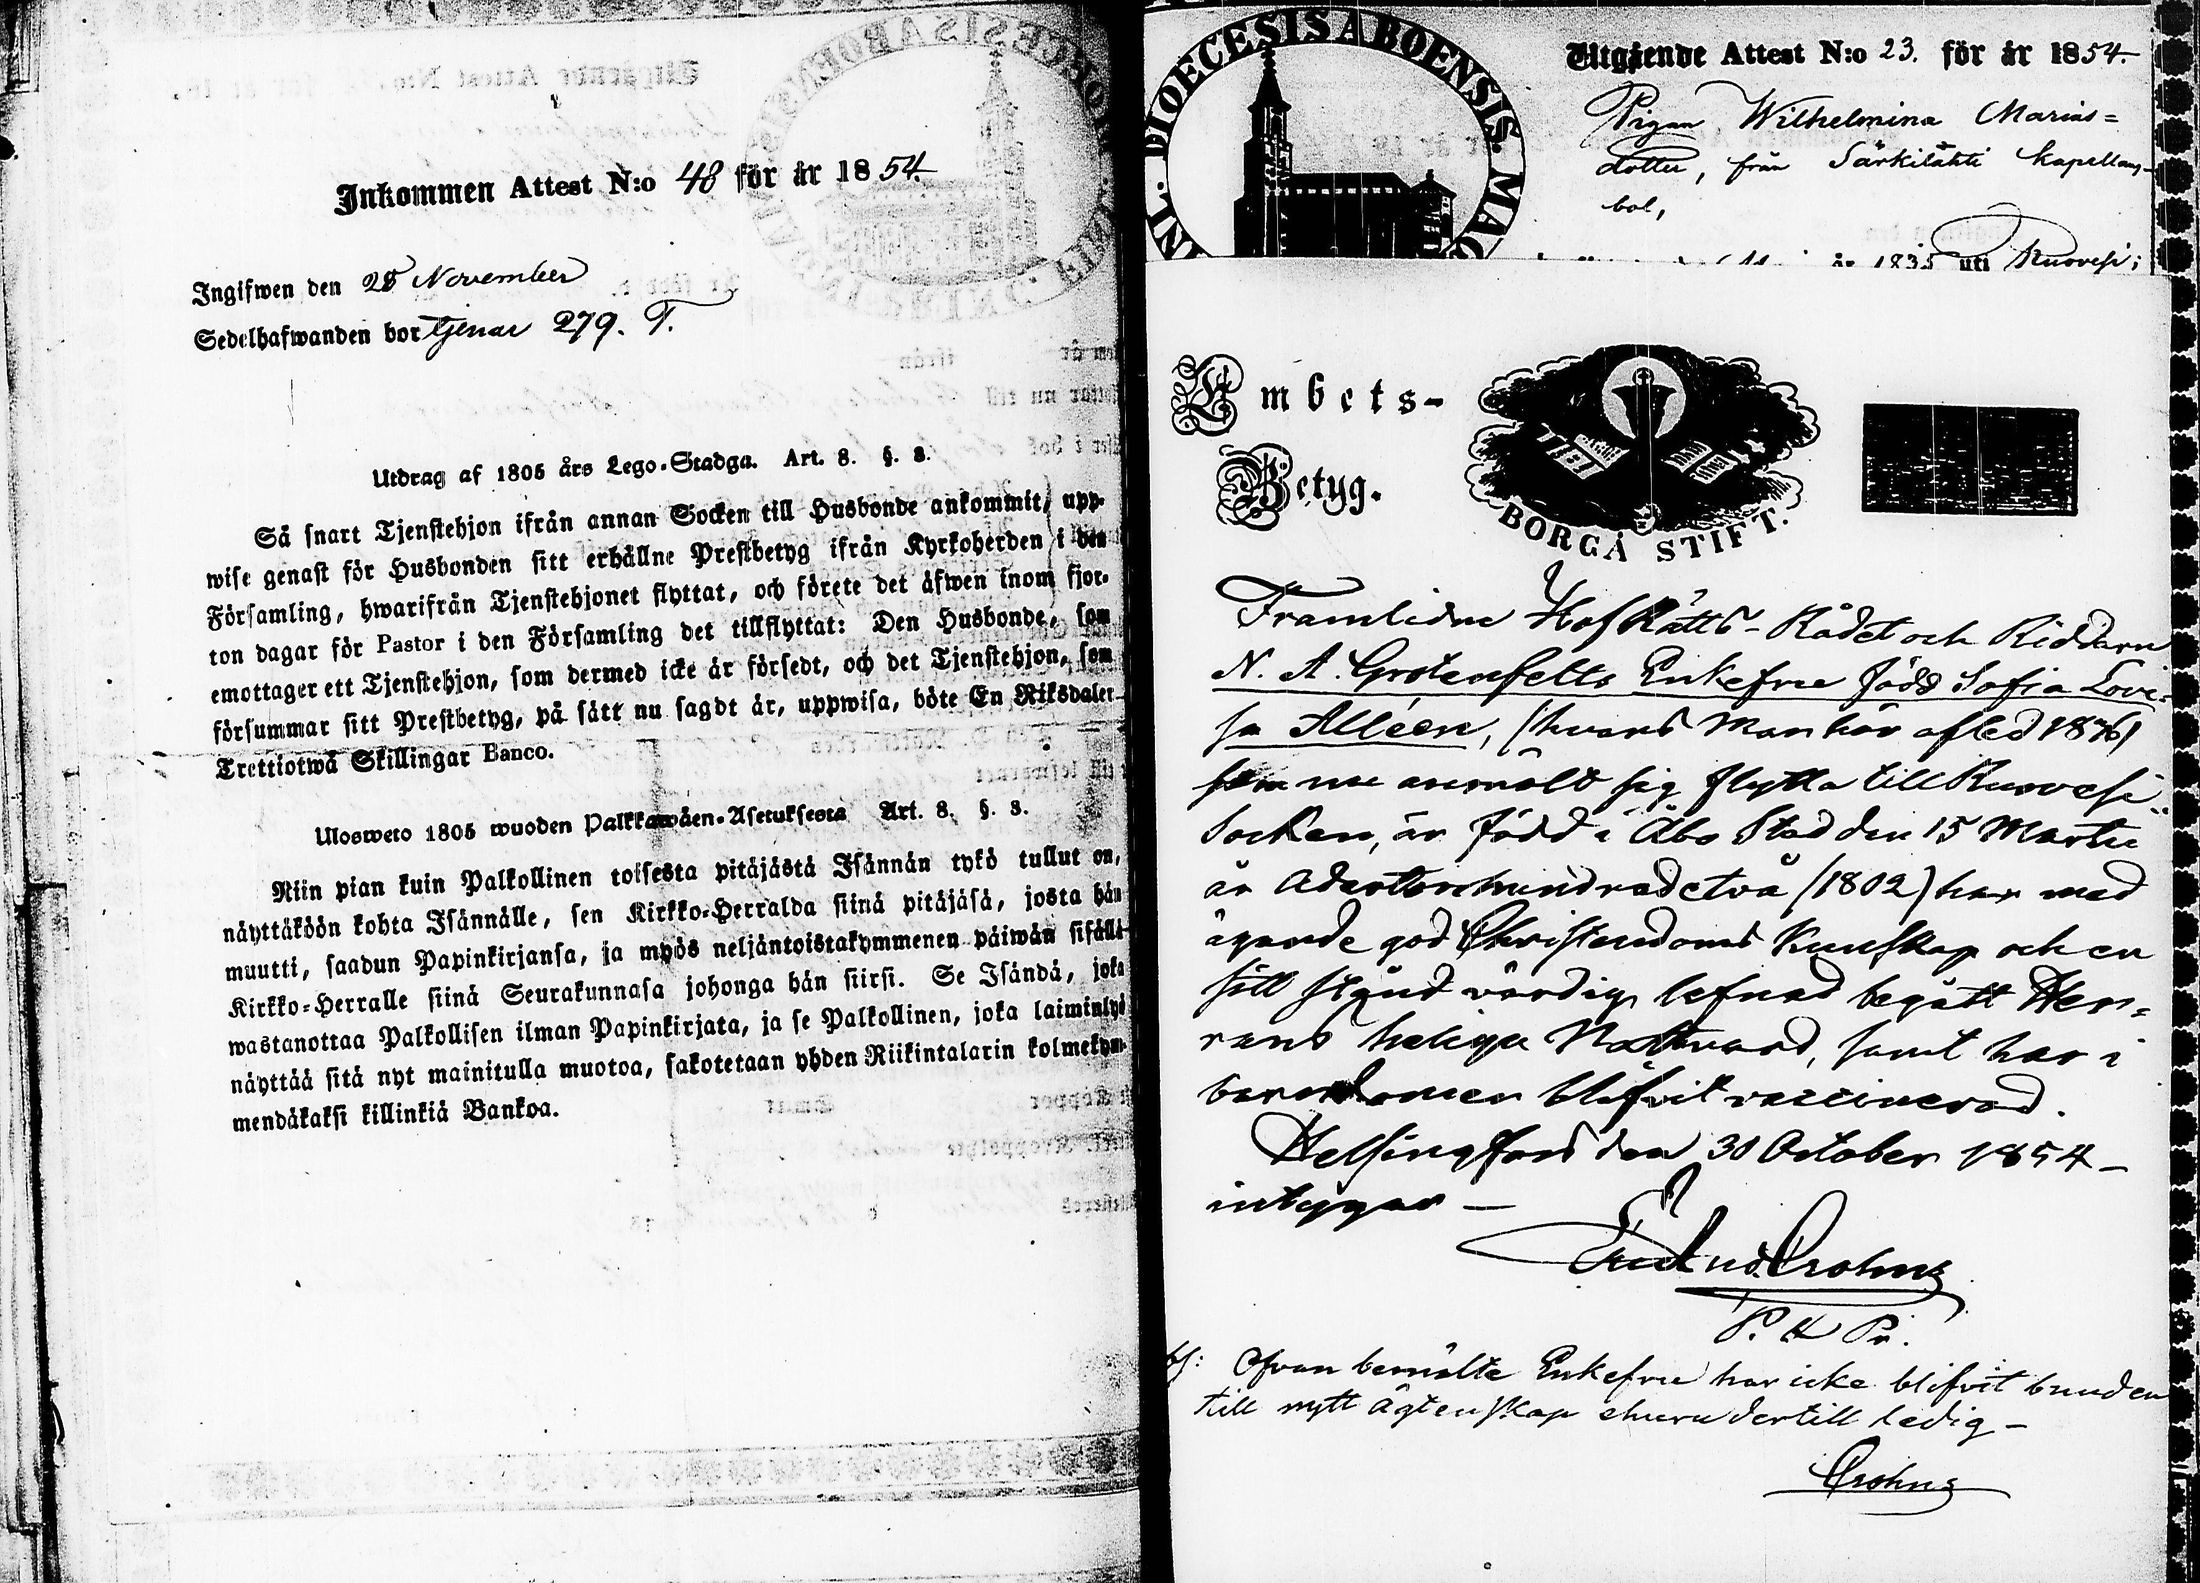 Inkommen Attest N:o 48 för år 1854.
Ingifwen den 28 November
Sedelhafwanden bor tjenar 279. T.
Utdrag af 1805 års Lego-Stadga. Art. 8. §. 8.
Så snart Tjenstehjon ifrån annan Socken till Husbonde ankommit, upp-
wise genast för Husbonden sitt erhållne Prestbetyg ifrån Kyrkoherden i den
Församling, hwarifrån Tjenstehjonet flyttat, och förete det äfwen inom fjor-
ton dagar för Pastor i den Församling det tillflyttat: Den Husbonde, som
emottager ett Tjenstehjon, som dermed icke är försedt, och det Tjenstehjon, som
försummar sitt Prestbetyg, på sätt nu sagdt är, uppwisa, böte En Riksdaler
Trettiotwå Skillingar Banco.
Ulosweto 1805 wuoden Palkkawäen-Asetuksesta Art. 8. §. 8.
Niin pian kuin Palkollinen toisesta pitäjästä Isännän tykö tullut on,
näyttäköön kohta Isännälle, sen Kirkko-Herralda siinä pitäjäsä, josta hän
muutti, saadun Papinkirjansa, ja myös neljäntoistakymmenen päiwän sisällä
Kirkko-Herralle siinä Seurakunnasa johonga hän siirsi. Se Isändä, joka
wastanottaa Palkollisen ilman Papinkirjata, ja se Palkollinen, joka laiminlyö
näyttää sitä nyt mainitulla muotoa, sakotetaan yhden Riikintalarin kolmekym-
mendäkaksi killinkiä Bankoa.
DIOECESIS ABOENSIS. MAG
Utgående Attest N:o 23. för år 1854.
Pigan Wilhelmina Marias=
dotter, från Särkilahti Kapellans-
bol,
år 1835 uti Ruovesi;
Embets-
Betyg.
BORGÅ STIFT.
Framlidne HofRätts-Rådet och Riddaren
N. A. Grotenfelts Enkefru född Sofia Lovi-
sa Alléen, (hvars Man här afled 1846)
som nu anmält sig flytta till Ruovesi
Socken, är född i Åbo Stad den 15 Martii
år Adertonhundradetvå (1802) har med
ägande god Christendoms Kunskap och en
sitt stånd värdig lefnad begått Her=
rans heliga Nattvard, samt har i
barndomen blifvit vaccinerad.
Helsingfors den 30 October 1854 –
intygar –
Crohns
P. H Pr.
Ofvan bemälte Enkefru har icke blifvit bunden
till nytt Ägtenskap utan dertill ledig –
Crohns